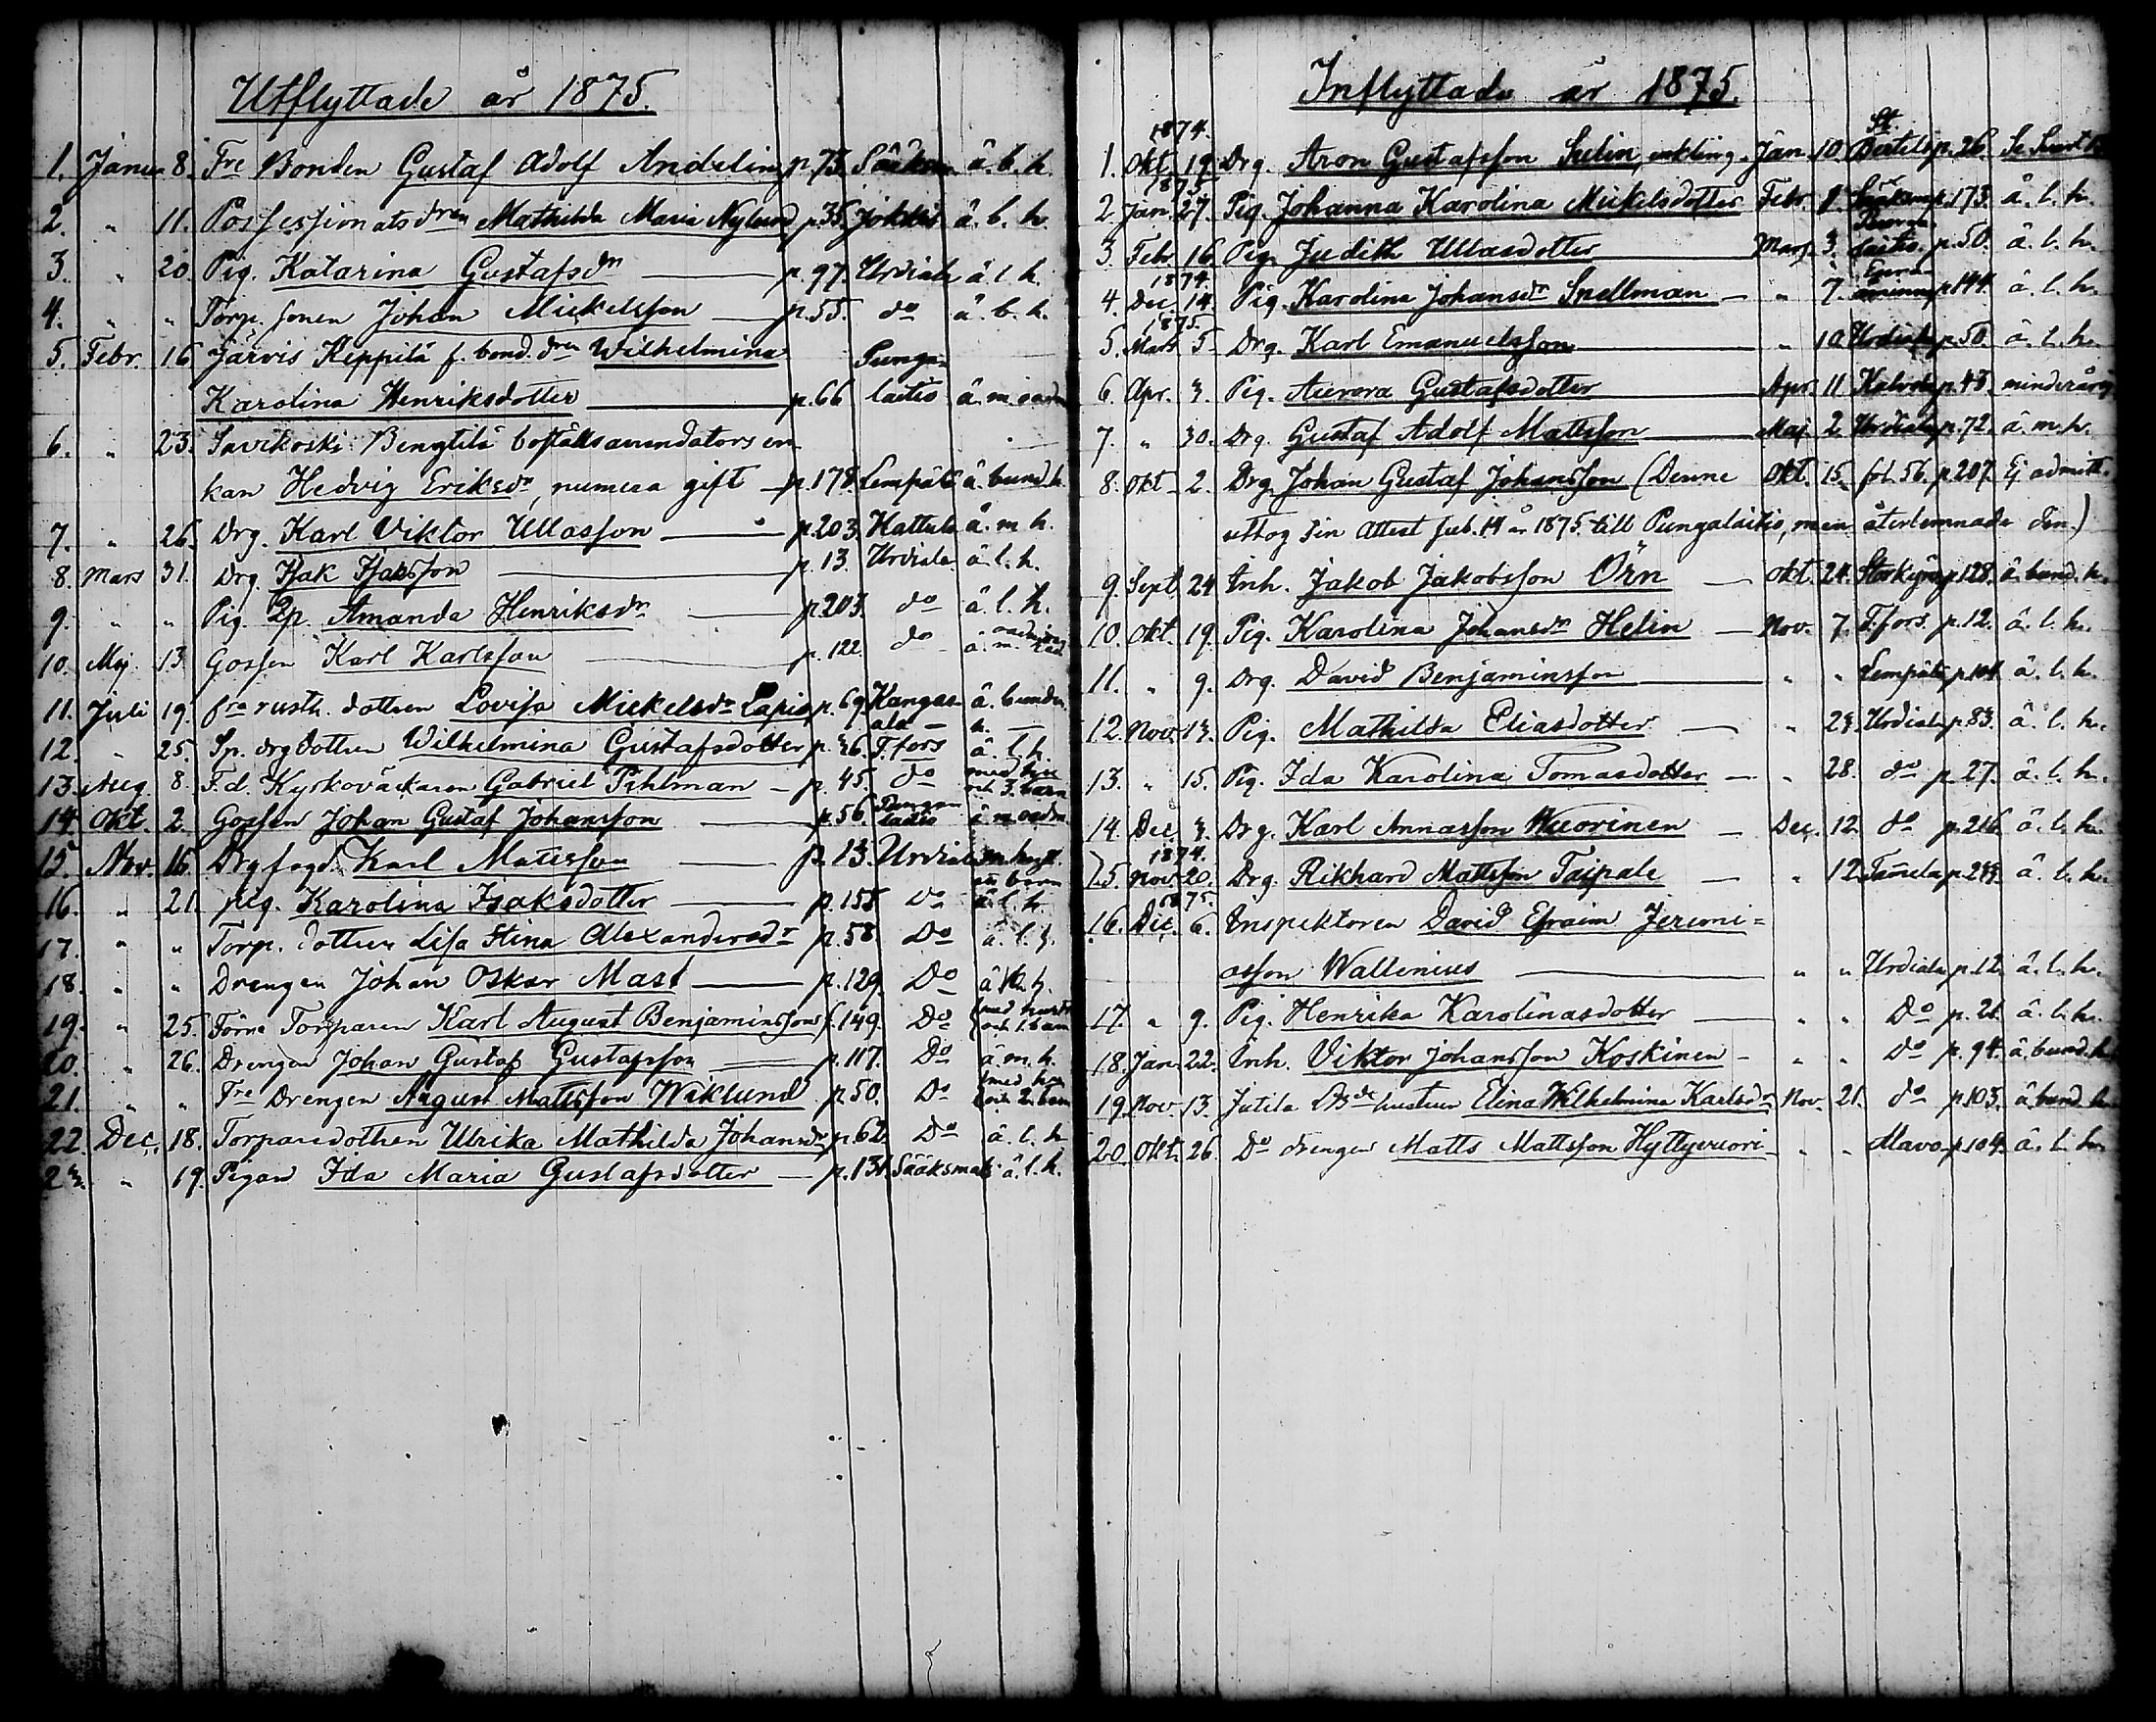 Utflyttade år 1875.
1. Janua 8. Fre Bonden Gustaf Adolf Andelin p. 73. Sääksm. ä. b. h.
2. " 11. Possessionatsdren Mathilda Maria Nylund p. 35. Jokkis ä. b. h.
3. " 20. Pig. Katarina Gustafsdr p. 97. Urdiala ä. l. h.
4. " " Torp. sonen Johan Mickelsson p. 55. do ä. b. h.
5. Febr. 16 Järvis Heppilä f. bond. dren Wilhelmina Punga-
Karolina Henriksdotter p. 66 laitio ä. m. oadm
6. " 23. Savikoski Bengtilä boställsarrendators en
kan Hedvig Eriksdr, numera gift p. 178. Lempälä ä. bund. h.
7. " 26. Drg. Karl Viktor Ullasson p. 203. Hattula ä. m. h.
8. Mars 31. Drg. Isak Isaksson p. 13. Urdiala ä. l. h.
9. " " Pig. Sp. Amanda Henriksdr p. 203. do ä. l. h.
10. Maj. 13. Gossen Karl Karlsson p. 122. do ä. m.
11. Juli 19. fra rusth. dottren Lovisa Mickelsdr Lapio p. 69. Kangas- ä. bunden
ala - h. -
12. " 25. Sp. drg dottren Wilhelmina Gustafsdotter p. 36. T.fors ä. l. h.
13. Aug. 8. F.d. Kyrkoväktaren Gabriel Pihlman p. 45. do med hu
och 3. barn
14. Okt. 2. Gossen Johan Gustaf Johansson p. 56. Punga
laitio ä. m. oadm.
15. Nov. 16. Drg fogd. Karl Matsson p. 13. Urdiala m. hust.
en barn
16. " 21. pig. Karolina Isaksdotter p. 155 Do ä. l. h.
17. " " Torp. dottren Lisa Stina Alexandersdr p. 58. Do ä. l. h.
18. " " Drengen Johan Oskar Mast p. 129. Do ä. l. h.
19. " 25. Förra Torparen Karl August Benjaminsson p. 149. Do med hustr
och 1. barn
20. " 26. Drengen Johan Gustaf Gustafsson p. 117. Do ä. m. h.
21. " " Fre Drengen August Mattsson Wiklund p. 50. Do med hu
och 2. barn
22. Dec. 18. Torparedottren Ulrika Mathilda Johansdr p. 62. Do ä. l. h
23. " 19. Pigan Ida Maria Gustafsdotter p. 131. Sääksmäki ä. l. h.
Inflyttade år 1875.
1874. St.
1. Okt. 19. Drg. Aron Gustafsson Sulin, enkling. Jan. 10 Bertils p. 26.
1875
2. Jan. 27. Pig. Johanna Karolina Mickelsdotter Febr. 1. Sääksm. p. 173. ä. l. h.
Punga-
3. Febr. 16. Pig. Judith Ullasdotter Mars. 3. laitio. p. 50. ä. l. h.
1874.
4. Dec. 14. Pig. Karolina Johansdr Snellman " 7. p. 144. ä. l. h.
1875.
5. Mars 5. Drg. Karl Emanuelsson " 10. Urdiala p. 50. ä. l. h.
6. Apr. 3. Pig. Aurora Gustafsdotter Apr. 11. Kalvola p. 48. minderårig
7. " 30. Drg. Gustaf Adolf Mattsson Maj. 2. Urdiala p. 72. ä. m. h.
8. Okt. 2. Drg. Johan Gustaf Johansson (Denne Okt. 15. fol. 56. p. 207. Ej admitt.
uttog sin attest sub. 14 år 1875. till Pungalaitio, men återlemnade den.)
9. Sept. 24 Inh. Jakob Jakobsson Örn Okt. 24. Storkyro p. 128. ä. bund. h.
10. Okt. 19. Pig. Karolina Johansdr Helin Nov. 7. T.fors. p. 12. ä. l. h.
11. " 9. Drg. David Benjaminsson " " Lempälä p. 104. ä. l. h.
12. Nov. 13. Pig. Mathilda Eliasdotter " 23. Urdiala p. 83. ä. l. h.
13. " 15. Pig. Ida Karolina Tomasdotter " 28. do p. 27. ä. l. h.
14. Dec. 3. Drg. Karl Annasson Wuorinen Dec. 12. do p. 216. ä. l. h.
1874.
15. Nov. 20. Drg. Rikhard Mattsson Taipale " 12. Tammela p. 244. ä. l. h.
1875.
16. Dec. 6. Inspektoren David Efraim Jeremi-
asson Wallenius " " Urdiala p. 12. ä. l. h.
17. " 9. Pig. Henrika Karolinasdotter " " Do p. 21. ä. l. h.
18. Jan. 22. Inh. Viktor Johansson Koskinen " " Do p. 94. ä. bund. h
19. Nov. 13. Jutila hustrun Elina Wilhelmina Karlsdr Nov. 21. do p. 103. ä. bund. h
20. Okt. 26. Do drengen Matts Mattsson Hyttyvuori " " p. 104. ä. l. h.